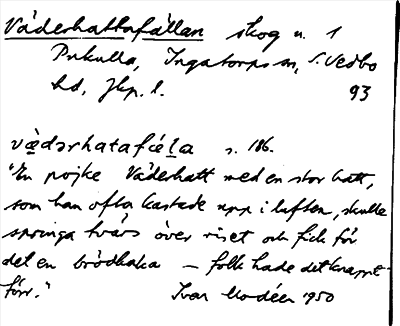 Väderhattafällan skog n. 1
Pukulla, Ingatorps sn, S. Vedbo
hd, Jkp. l. 93
vädərhatafäla s. 186.
"En pojke Väderhatt med en stor hatt,
som han ofta kastade upp i luften, skulle
springa tvärs över riset och fick för
det en brödkaka — folk hade det knappt
förr." Ivar Modéer 1950